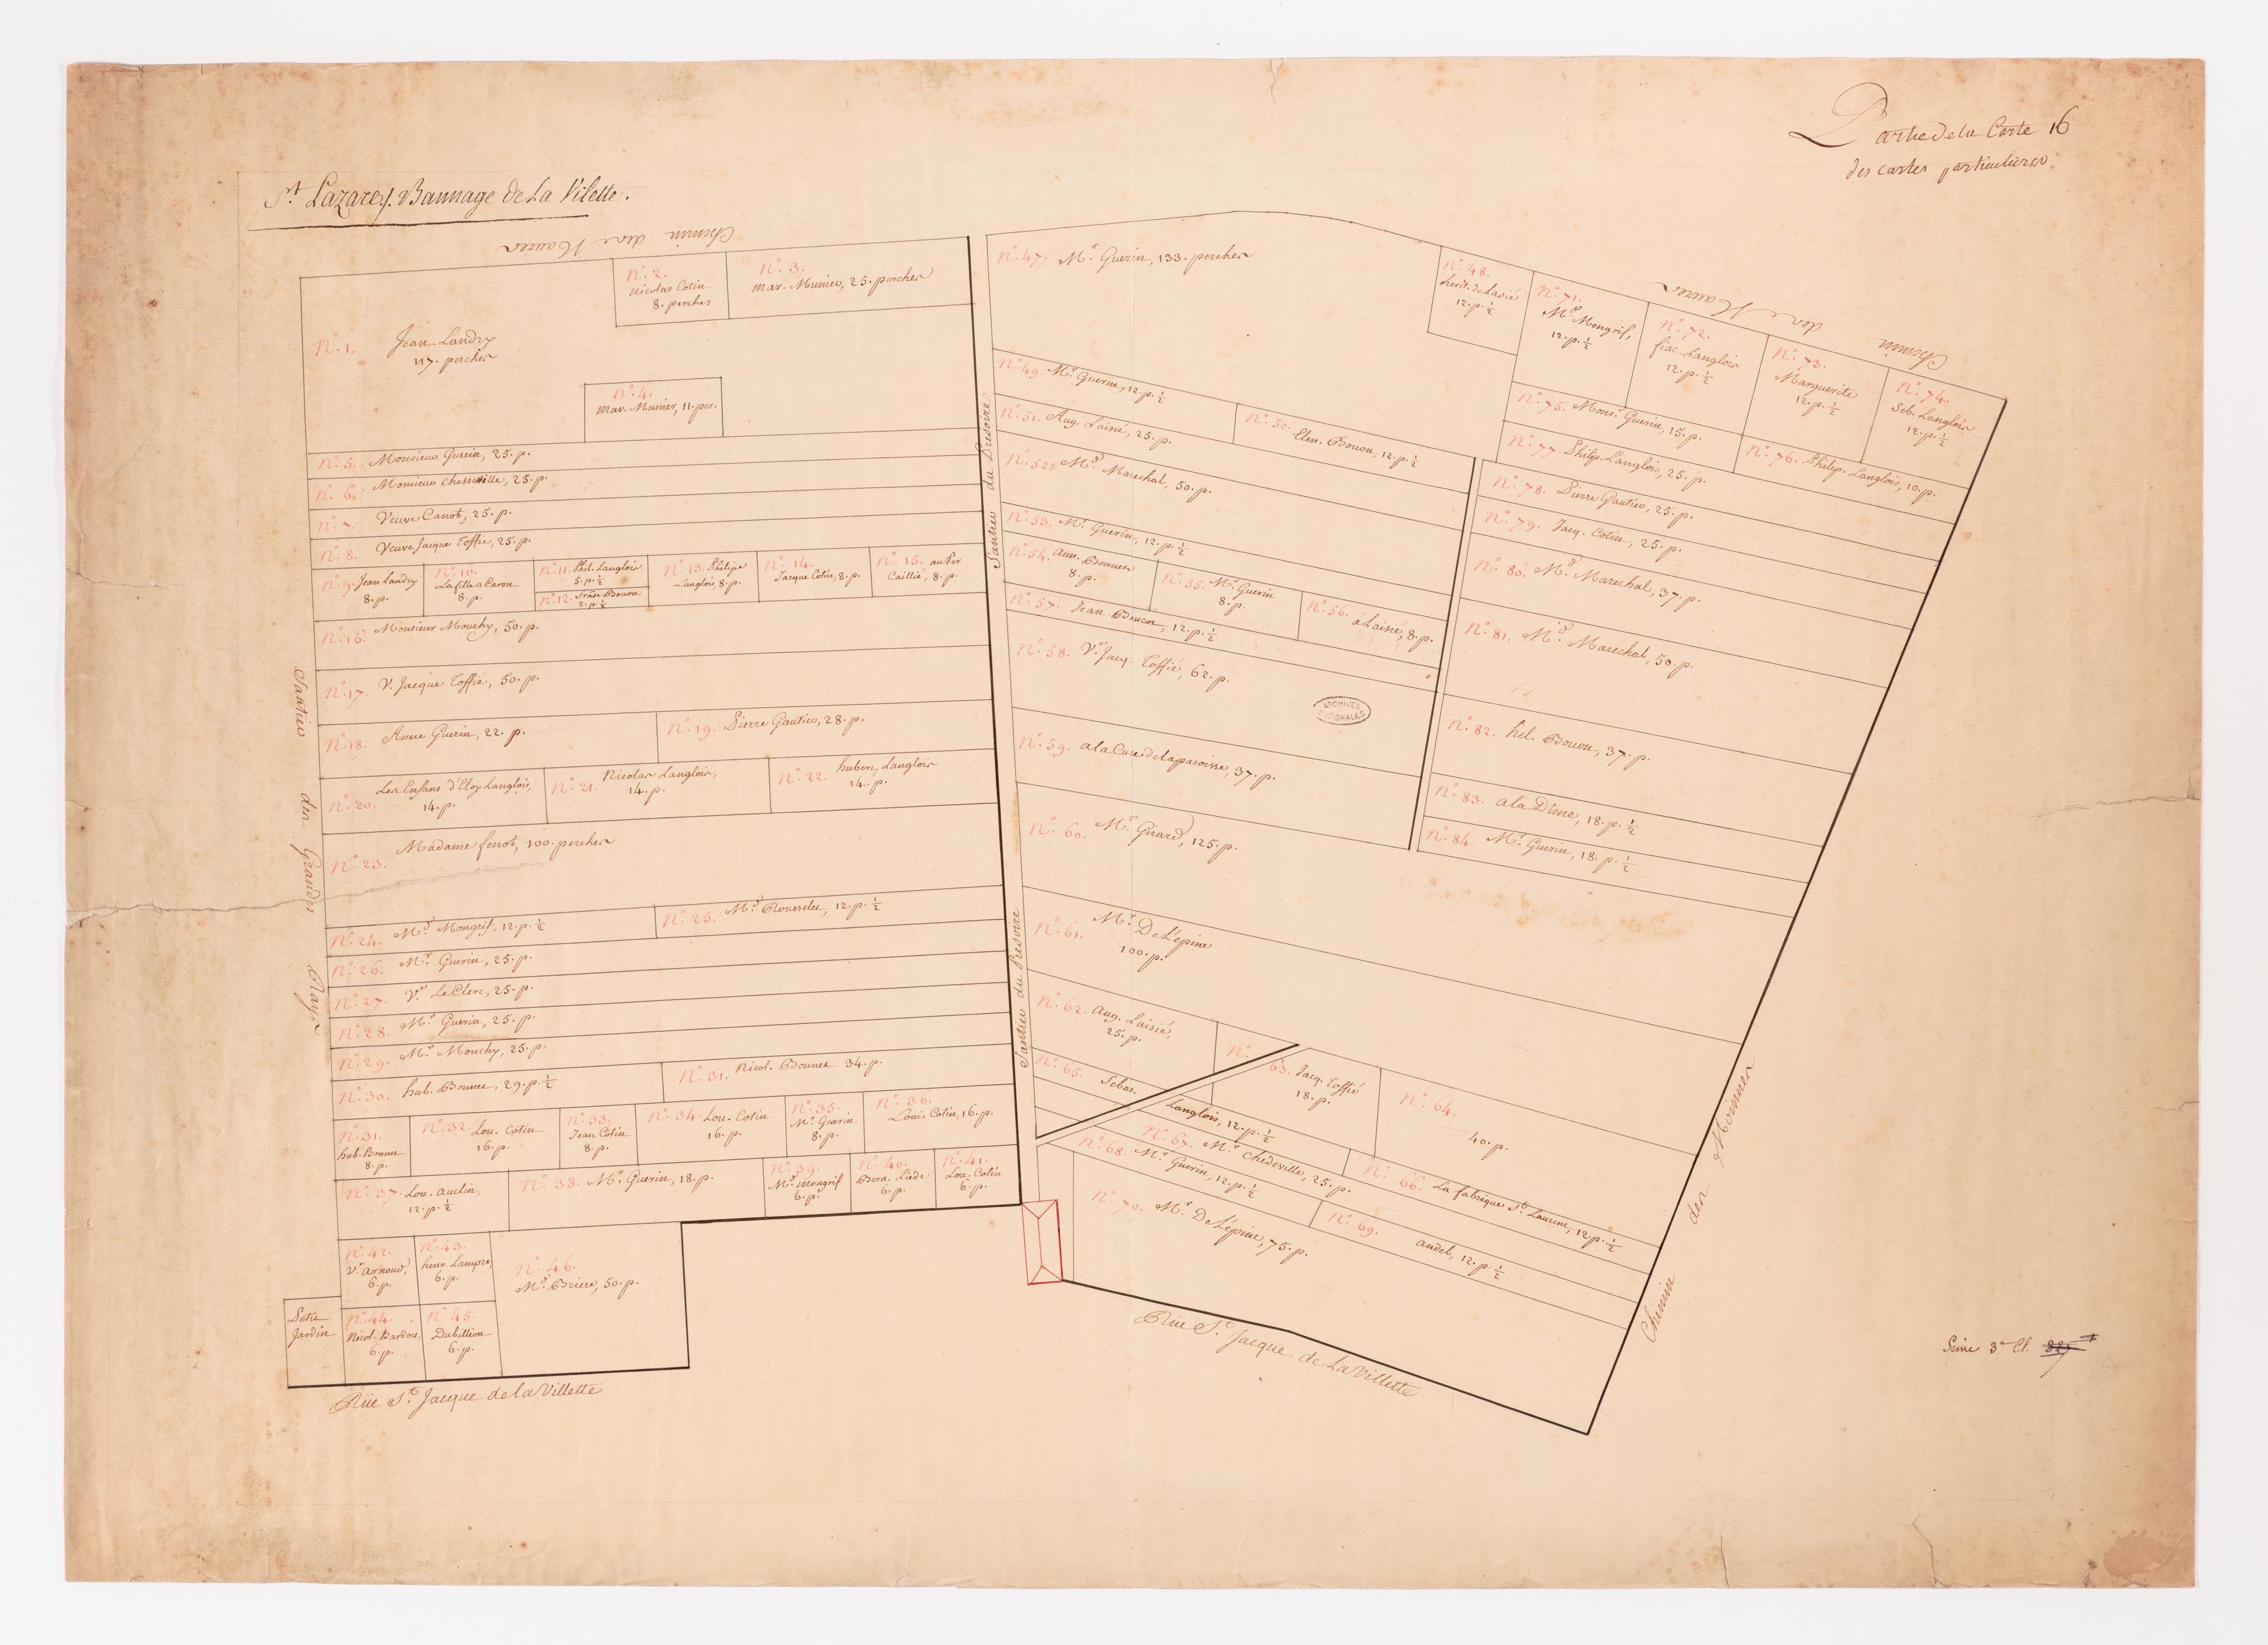 Partie de la Carte 16
des cartes particulieres.
St. Lazare /. Bannage de La Vilette.
Chemin des
N°. 1. Jean Landry
117. perches
N°. 2.
Nicolas Cotin
8. perches
N°. 3.
Mar. Munier, 25. perches
N°. 4.
Mar. Munier, 11. per.
N°. 5. Monsieur Guerin, 25. p.
N°. 6. Monsieur 25. p.
N°. 7. Veuve Canot, 25. p.
N°. 8. Veuve Jacque Toffié, 25. p.
N°. 9. Jean Landry
8. p.
N°. 10.
La fille a Caron
8. p.
N°. 11. Phil. Langlois
5. p. ½
N°. 12. Bouon
2. p. ½
N°. 13. Philipe
Langlois, 8. p.
N°. 14.
Jacque Cotin, 8. p.
N°. 15.
Caillié, 8. p.
N°. 16. Monsieur Mouchy, 50. p.
N°. 17. V. Jacque Toffié, 50. p.
N°. 18. Anne Guerin, 22. p.
N°. 19. Pierre Gautier, 28. p.
N°. 20. Les Enfans d'Eloy Langlois,
14. p.
N°. 21. Nicolas Langlois,
14. p.
N°. 22. Langlois
14. p.
N°. 23. Madame fenot, 100. perches
N°. 24. Md. Mongrif, 12. p. ½
N°. 25. Md. Rousselet, 12. p. ½
N°. 26. Mr. Guerin, 25. p.
N°. 27. Ve. Le Clerc, 25. p.
N°. 28. Mr. Guerin, 25. p.
N°. 29. Mr. Mouchy, 25. p.
N°. 30. hub. Bonnet, 29. p. ½
N°. 31. Nicol. Bonnet 34. p.
N°. 31.
hub. Bonnet
8. p.
N°. 32. Lou. Cotin
16. p.
N°. 33.
Jean Cotin
8. p.
N°. 34. Lou. Cotin
16. p.
N°. 35.
Mr. Guerin
8. p.
N°. 36.
Louis Cotin, 16. p.
N°. 37. Lou. auclin,
12. p. ½
N°. 38. Mr. Guerin, 18. p.
N°. 39.
Md. mongrif
6. p.
N°. 40.
Bern. Liede
6. p.
N°. 41.
Lou. Cotin
6. p.
N°. 42.
Ve. arnoud,
6. p.
N°. 43.
henr. Lampre,
6. p.
N°. 44.
Nicol. Bardou,
6. p.
N°. 45.
Dubillion
6. p.
N°. 46.
Md. Briere, 50. p.
Petit
Jardin
Rüe St. Jacque de la Villette
Santier des Grandes Rayes
Santier du Presoire
Santier du Presoire
N°. 47. Mr. Guerin, 133. perches
N°. 48.
12. p. ½
N°. 49. Mr. Guerin, 12. p. ½
N°. 50. Bouon, 12. p. ½
N°. 51. Aug. Laisié, 25. p.
N°. 52. Md. Marechal, 50. p.
N°. 53. Mr. Guerin, 12. p. ½
N°. 54. ann. Bonnet
8. p.
N°. 55. Mr. Guerin
8. p.
N°. 56. a Laisié, 8. p.
N°. 57. Jean 12. p. ½
N°. 58. Ve. Jacq. Toffié, 62. p.
N°. 59. a la Cure de la paroisse, 37. p.
N°. 60. Mr. Girard, 125. p.
N°. 61. Mr. De Lépine
100. p.
N°. 62. Aug. Laisié,
25. p.
N°. 63. Jacq. Toffié
18. p.
N°. 64.
40. p.
N°. 65. Sebas. Langlois, 12. p. ½
N°. 66. La fabrique St. Laurent, 12. p. ½
N°. 67. Mr. Chedeville, 25. p.
N°. 68. Mr. Guerin, 12. p. ½
N°. 69. audet, 12. p. ½
N°. 70. Mr. De Lépine, 75. p.
N°. 71.
Md. Mongrif,
12. p. ½
N°. 72.
fiac. Langlois
12. p. ½
N°. 73.
Marguerite
12. p. ½
N°. 74.
Seb. Langlois
12. p. ½
N°. 75. Monsr. Guerin, 15. p.
N°. 76. Philip. Langlois, 10. p.
N°. 77. Philip. Langlois, 25. p.
N°. 78. Pierre Gautier, 25. p.
N°. 79. Jacq. Cotin, 25. p.
N°. 80. Md. Marechal, 37. p.
N°. 81. Md. Marechal, 50. p.
N°. 82. hel. Bouon, 37. p.
N°. 83. a la Dîme, 18. p. ½
N°. 84. Mr. Guerin, 18. p. ½
Chemin des
Chemin des
Rüe St. Jacque de La Villette
ARCHIVES
NATIONALES
Seine 3e Cl.